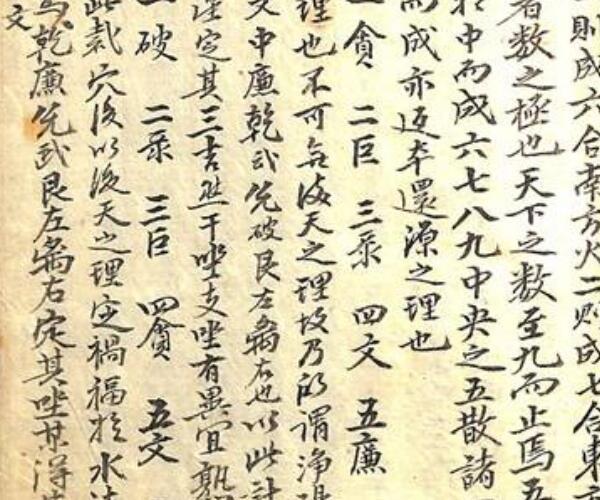 則成六合南方火二則成七合東方
者數之極也天下之數至九而止焉五
於中而成六七八九中央之五散諸
而成亦返本還源之理也
一貪 二巨 三彔 四文 五廉
理也不可無後天之理故乃所謂淨
文中廉乾武兊破艮左輔右也以此計
淫定其三吉然干坐支坐有異宜熟
一破 二彔 三巨 四貪 五文
此裁穴後以後天之理定禍福於水法
為乾廉兊武艮左輔右定其坐某得
文